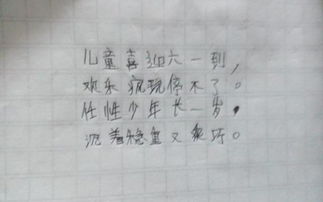 儿童喜迎六一到，
欢乐疯玩停不了。
任性少年长一岁，
沉着稳重又乖巧。